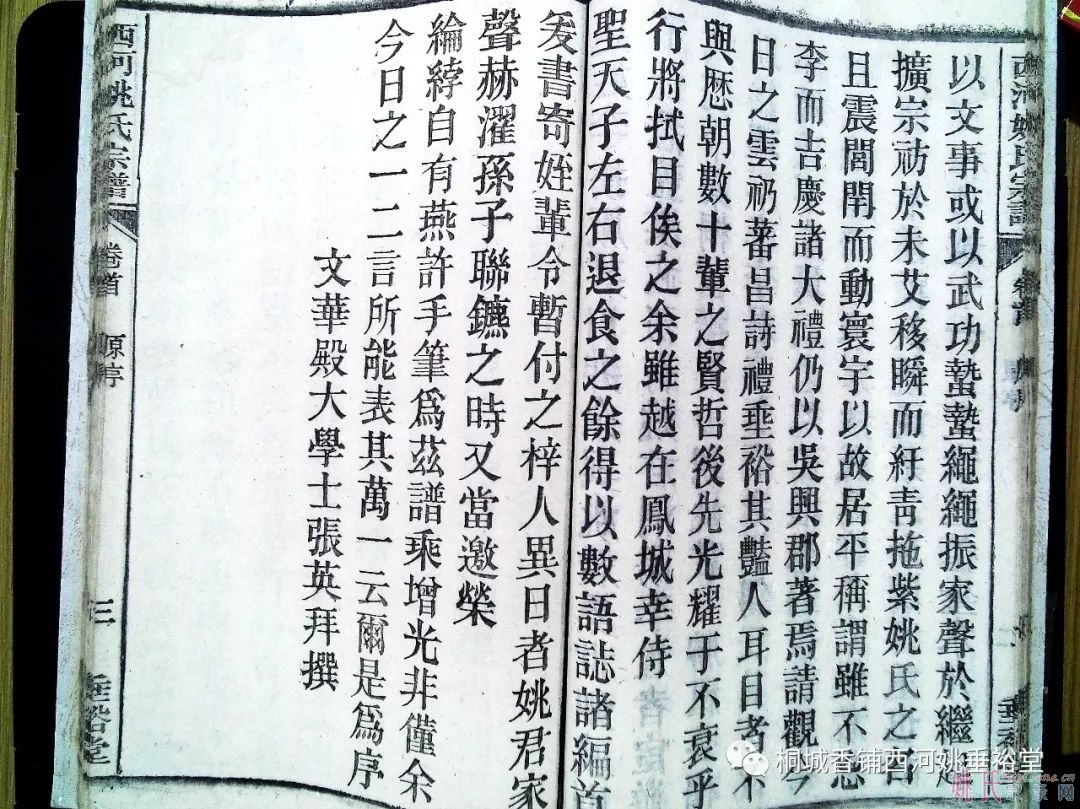 以文事或以武功蟄蟄繩繩振家聲於繼
擴宗祊於未艾移瞬而紆靑拖紫姚氏之
且震閭閈而動寰宇以故居平稱謂雖不忍
李而吉慶諸大禮仍以吳興郡著焉請觀今
日之雲礽蕃昌詩禮埀裕其豔人耳目者不
與歴朝數十輩之賢哲後先光耀于不衰乎
行將拭目俟之余雖越在鳳城幸侍
聖天子左右退食之餘得以數語誌諸編首
爰書寄姪輩令暫付之梓人異日者姚君家
聲赫濯孫子聯鑣之時又當邀榮
綸綍自有燕許手筆爲茲譜乘增光非僅余
今日之一二言所能表其萬一云爾是爲序
文華殿大學士張英拜撰
西河姚氏宗譜
卷首
原序
三
垂裕堂
桐城香铺西河姚垂裕堂
姚氏